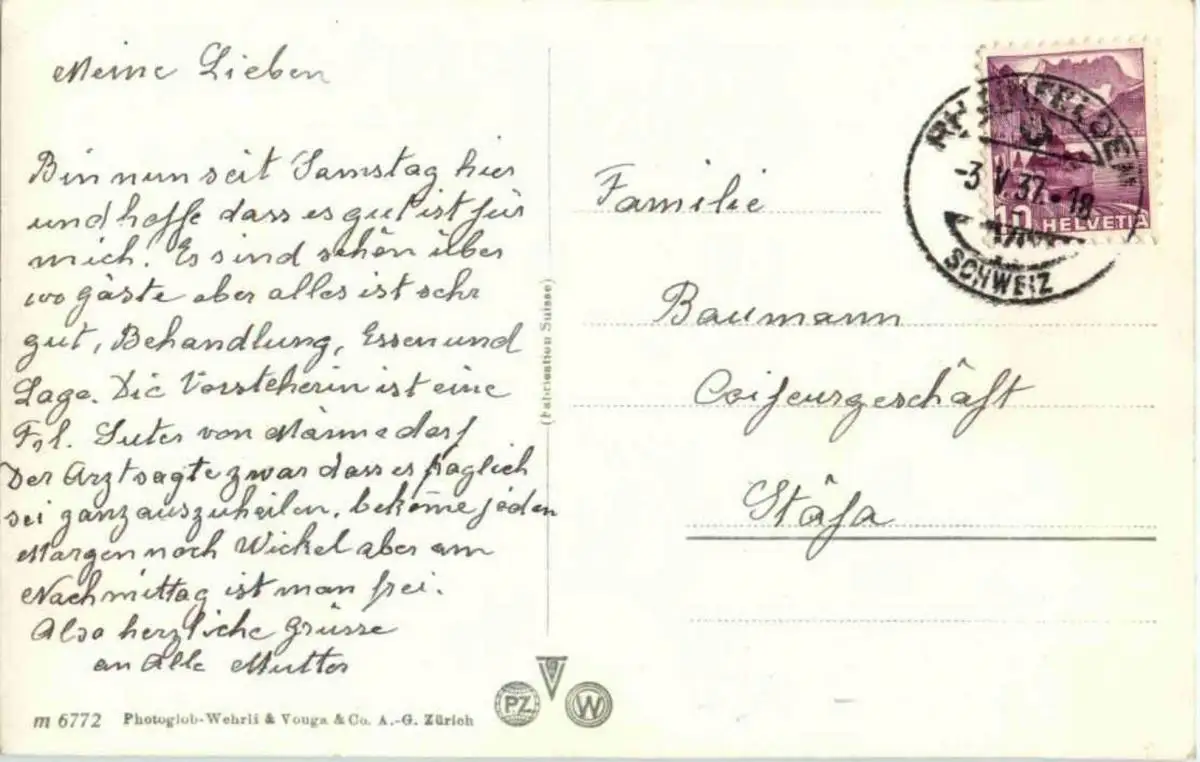 Meine Lieben
Bin nun seit Samstag hier
und hoffe dass es gut ist für
mich. Es sind schön über
100 gäste aber alles ist sehr
gut, Behandlung, Essen und
Lage. Die Vorsteherin ist eine
Frl. Suter von Männedorf
Der Arzt sagte zwar dass es fraglich
sei ganz auszuheilen, bekome jeden
Morgen noch Wickel aber am
Nachmittag ist man frei.
Also herzliche Grüsse
an Alle Mutter
m 6772 Photoglob-Wehrli & Vouga & Co. A.-G. Zürich
(Fabrication Suisse)
PZ
W
Familie
Baumann
Coifeurgeschäft
Stäfa
RHEINFELDEN
-3.V.37.-18
SCHWEIZ
10 HELVETIA